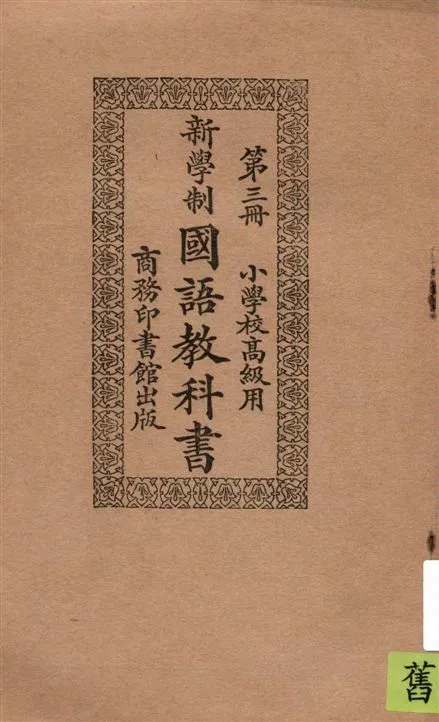 第三冊 小學校高級用
新學制國語教科書
商務印書館出版
舊